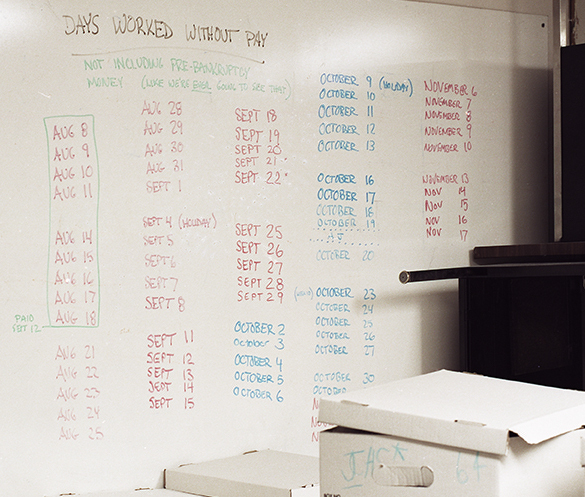 DAYS WORKED WITHOUT PAY
NOT INCLUDING PRE-BANKRUPTCY
MONEY (LIKE WE'RE EVER GOING TO SEE THAT)
AUG 8
AUG 9
AUG 10
AUG 11
AUG 14
AUG 15
AUG 16
AUG 17
AUG 18
PAID
AUG 21
AUG 22
AUG 23
AUG 24
AUG 25
AUG 28
AUG 29
AUG 30
AUG 31
SEPT 1
SEPT 4 (HOLIDAY)
SEPT 5
SEPT 6
SEPT 7
SEPT 8
SEPT 11
SEPT 12
SEPT 13
SEPT 14
SEPT 15
SEPT 18
SEPT 19
SEPT 20
SEPT 21
SEPT 22
SEPT 25
SEPT 26
SEPT 27
SEPT 28
SEPT 29
OCTOBER 2
OCTOBER 3
OCTOBER 4
OCTOBER 5
OCTOBER 6
OCTOBER 9 (HOLIDAY)
OCTOBER 10
OCTOBER 11
OCTOBER 12
OCTOBER 13
OCTOBER 16
OCTOBER 17
OCTOBER 18
OCTOBER 19
OCTOBER 20
OCTOBER 23
OCTOBER 24
OCTOBER 25
OCTOBER 26
OCTOBER 27
OCTOBER 30
OCTOBER
NOVEMBER 6
NOVEMBER 7
NOVEMBER 8
NOVEMBER 9
NOVEMBER 10
NOVEMBER 13
NOV 14
NOV 15
NOV 16
NOV 17